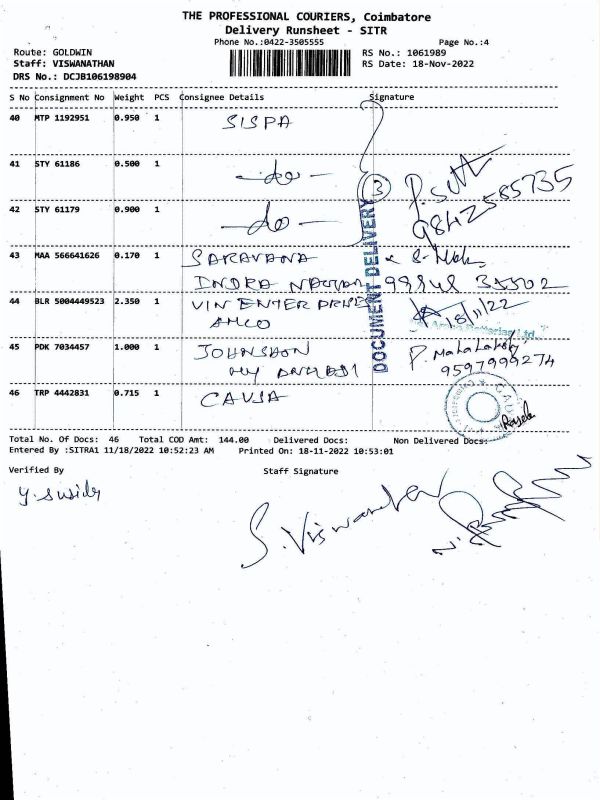 THE PROFESSIONAL COURIERS, Coimbatore
Delivery Runsheet - SITR
Phone No.:0422-3505555 Page No.:4
Route: GOLDWIN RS No.: 1061989
Staff: VISWANATHAN RS Date: 18-Nov-2022
DRS No.: DCJB106198904
S No Consignment No Weight PCS Consignee Details Signature
40 MTP 1192951 0.950 1 SISPA
41 STY 61186 0.500 1 -do-
3
42 STY 61179 0.900 1 -do-
9842585735
DOCUMENT DELIVERY
43 MAA 566641626 0.170 1 SARAVANA
INDRA NAGAR 99948 35502
44 BLR 5004449523 2.350 1 VIN ENTERPRISES
AMCO
18/11/22
45 PDK 7034457 1.000 1 JOHNSHON
P. Mahalakshmi
9597999274
46 TRP 4442831 0.715 1 CAUSA
Total No. Of Docs: 46 Total COD Amt: 144.00 Delivered Docs: Non Delivered Docs:
Entered By :SITRA1 11/18/2022 10:52:23 AM Printed On: 18-11-2022 10:53:01
Verified By Staff Signature
S. Viswanathan